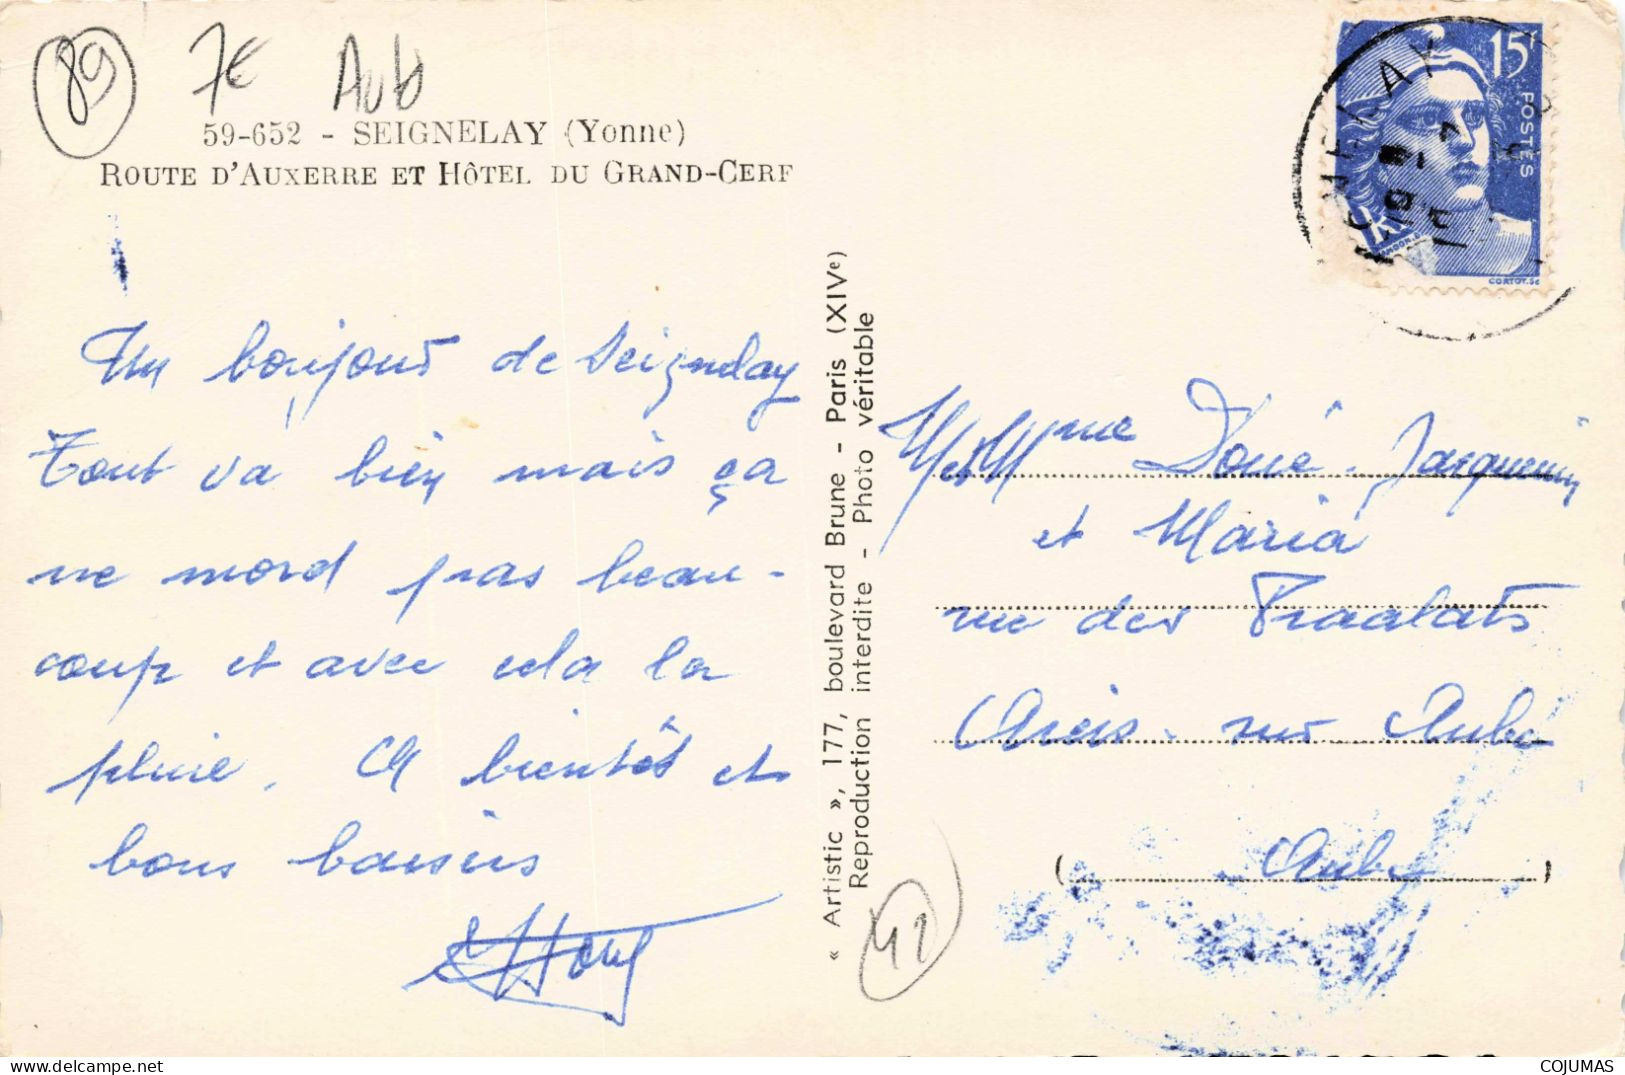 89
7€
Aub
59-652 - SEIGNELAY (Yonne)
ROUTE D'AUXERRE ET HÔTEL DU GRAND-CERF
Un bonjour de Seignelay
Tout va bien mais ça
ne mord pas beau-
coup et avec cela la
pluie. A bientôt et
bons baisers
« Artistic », 177, boulevard Brune - Paris (XIVe)
Reproduction interdite - Photo véritable
42
15f
POSTES
RF
CORTOT.SC
M et Mme Doué-Jacquemin
et Maria
rue des
Arcis-sur Aube
(Aube)
COJUMAS
www.delcampe.net